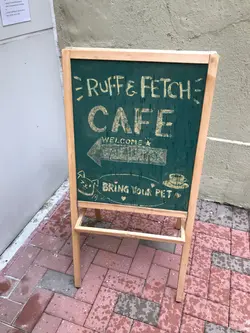 RUFF & FETCH
CAFE
WELCOME &
BRING YOUR PET